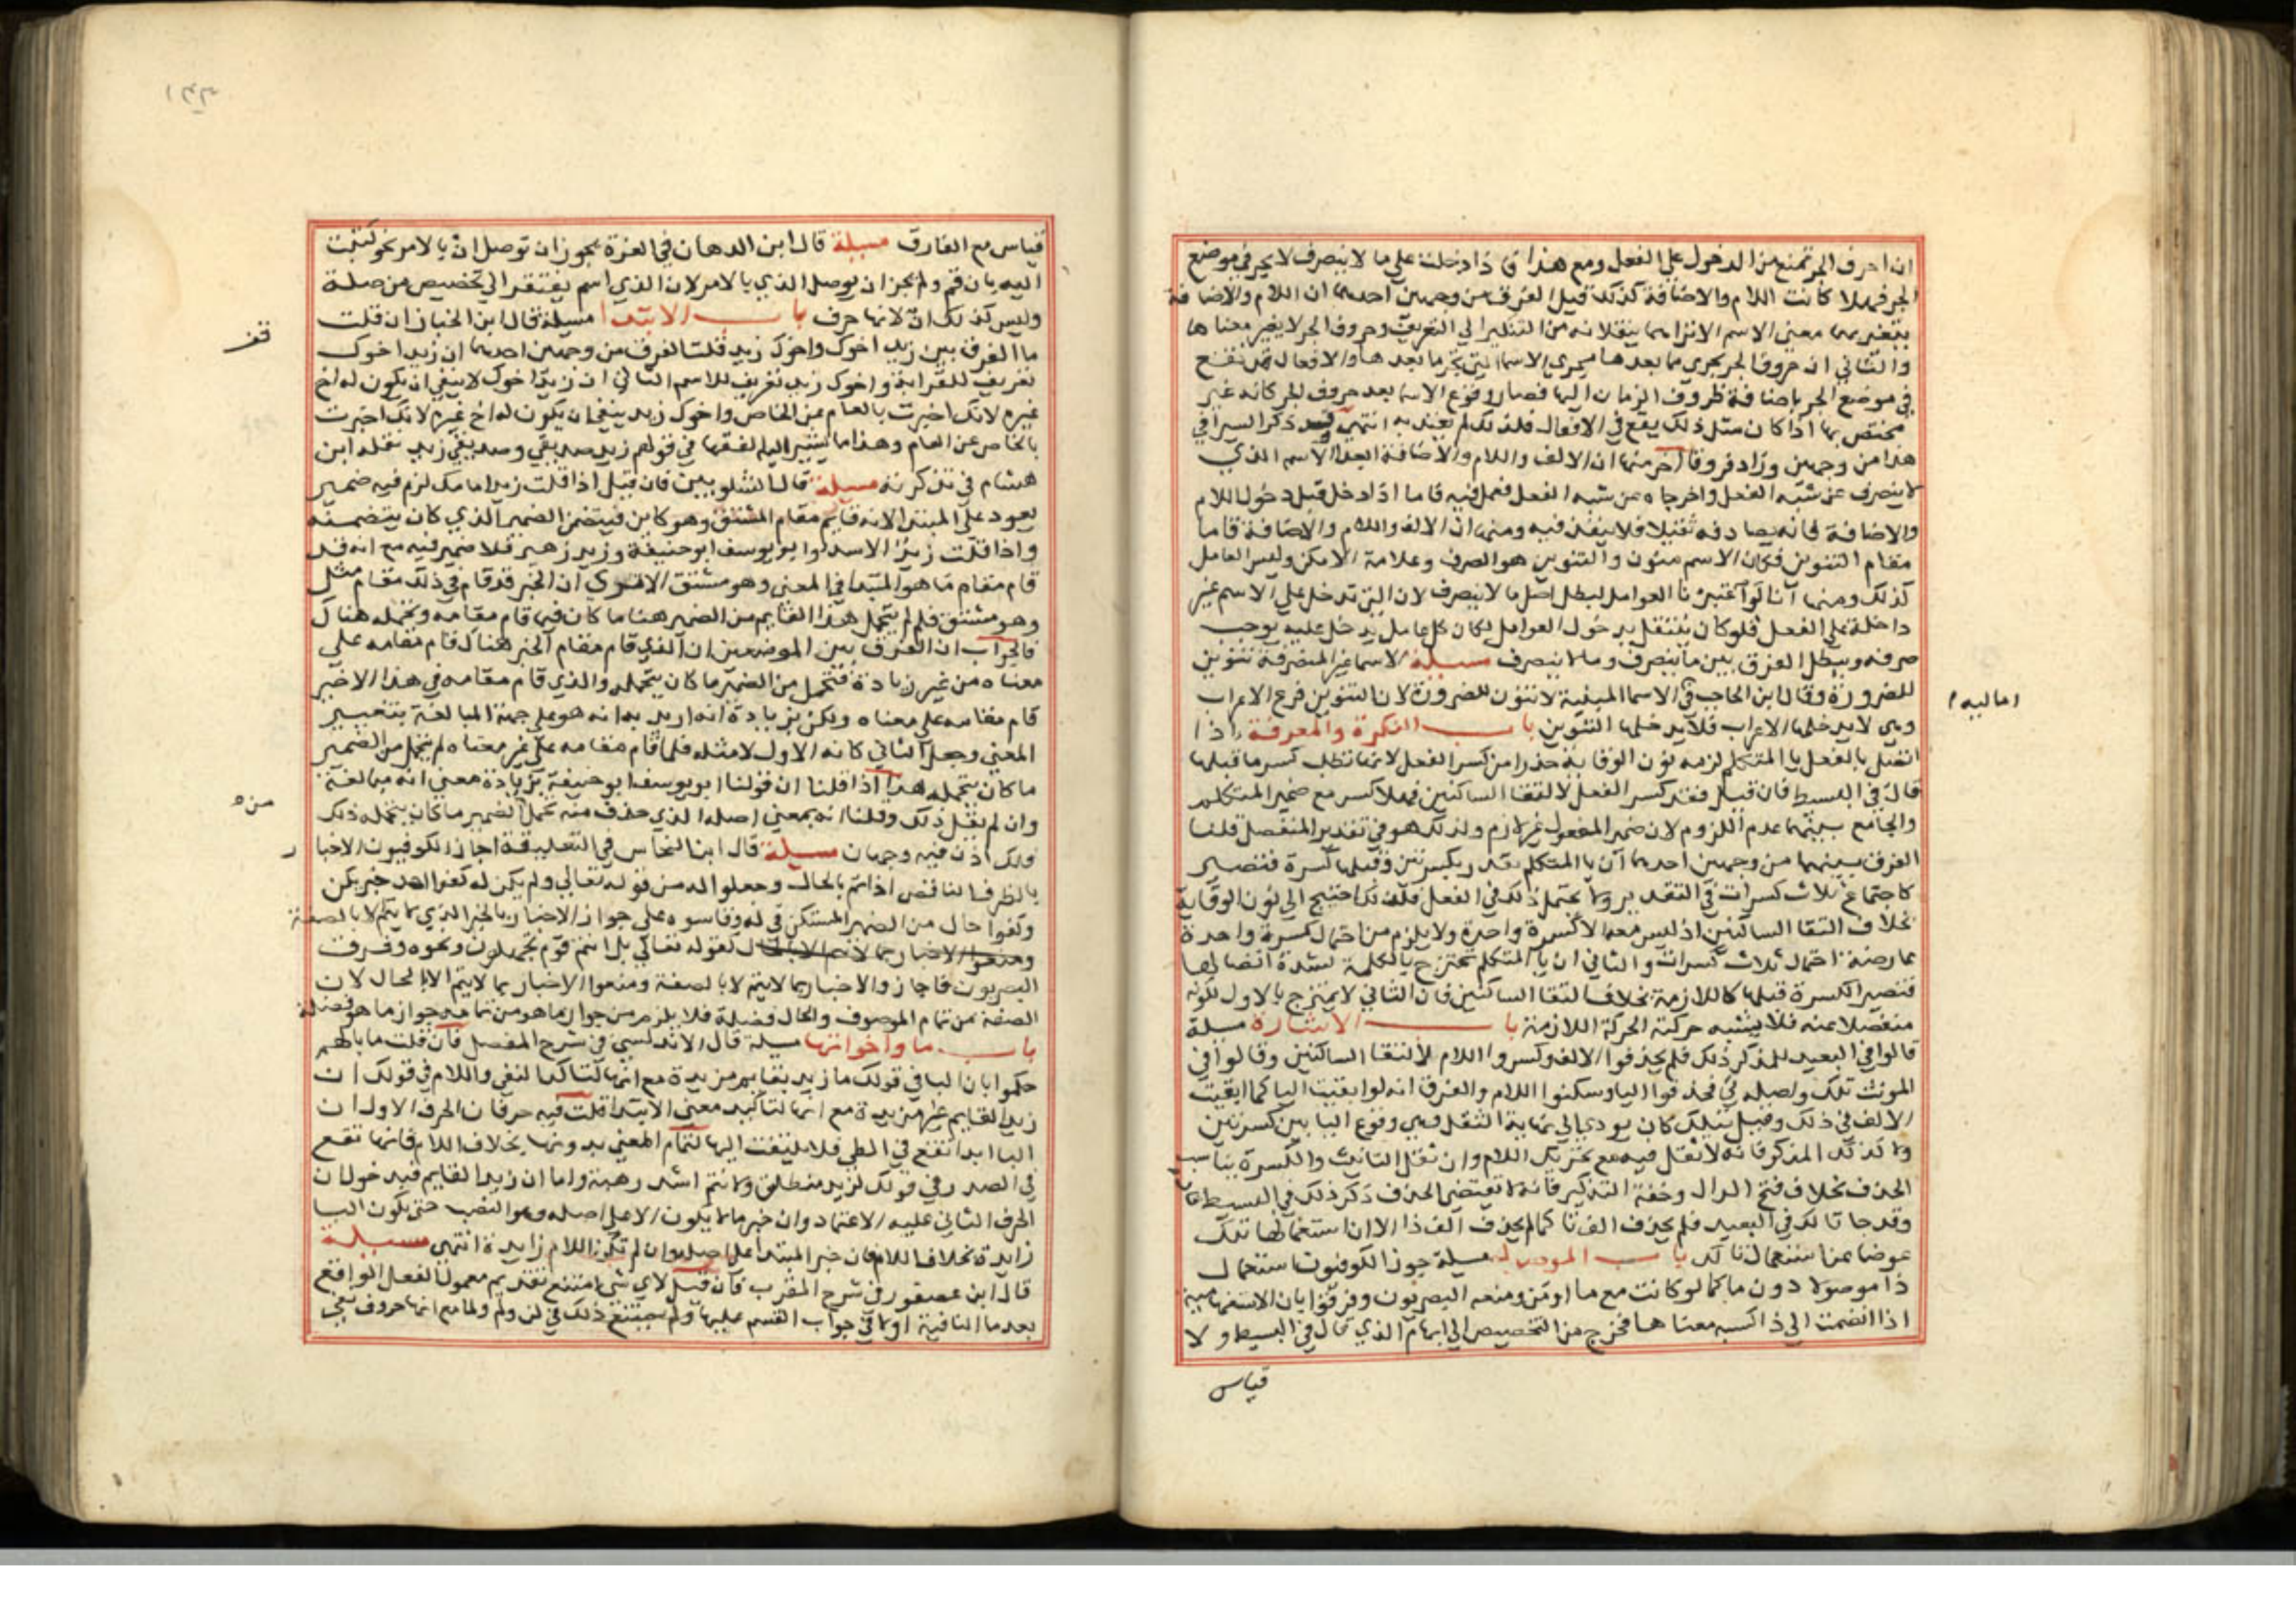 ان احرف الجر تمنع من الدخول علي الفعل ومع هذا اذا دخلت علي ما لا ينصرف لا يجر في موضع
الجر فهلا كانت اللام والاضافة كذلك قيل الفرق من وجهين احدهما ان اللام والاضافة
يتغير بهما معني الاسم الا تراهما ينقلانه من التنكير الي التعريف وحروف الجر لا يغير معناها
والثاني ان حروف الجر يجري مما بعدها مجري الاسما التي يجر ما بعدها والافعال قد تقع
في موضع الجر باضافة ظروف الزمان اليها فصار وقوع الاسما بعد حروف الجر كانه غير
مختص بها اذا كان مثل ذلك يقع في الافعال فلذلك لم يعتد به انتهي وقد ذكر السيرافي
هذا من وجهين وزاد فروقا اخر منها ان الالف واللام والاضافة ابعدا الاسم الذي
لا ينصرف عن شبه الفعل واخرجاه عن شبه الفعل فعمل فيه فاما اذا دخل قبل دخول اللام
والاضافة فانه يصادفه ثقيلا فلا ينفذ فيه ومنها ان الالف واللام والاضافة قاما
مقام التنوين فكان الاسم منون والتنوين هو الصرف وعلامة الامكن وليس العامل
كذلك ومنها انا لو اعتبرنا العوامل لبطل اصل ما لا ينصرف لان التي تدخل علي الاسم غير
داخلة علي الفعل فلو كان ينتقل بدخول العوامل لكان كل عامل يدخل عليه يوجب
صرفه ويبطل الفرق بين ما ينصرف وما لا ينصرف مسيلة الاسما غير المنصرفة تنوين
للضرورة وقال ابن الحاجب في الاسما المبنية لا تنون للضرورة لان التنوين فرع الاعراب
وهي لا يدخلها الاعراب فلا يدخلها التنوين باب النكرة والمعرفة اذا
اماليه
اتصل بالفعل يا المتكلم لزمه نون الوقاية حذرا من كسر الفعل لانها تطلب كسر ما قبلها
قال في البسيط فان قيل فقد كسر الفعل لالتقا الساكنين فهلا كسر مع ضمير المتكلم
والجامع بينهما عدم اللزوم لان ضمير المفعول غير لازم ولذلك هو في تقدير المنفصل قلنا
الفرق بينهما من وجهين احدهما ان يا المتكلم يقدر بكسرتين وقبلها كسرة فتصير
كاجتماع ثلاث كسرات في التقدير ولا يحتمل ذلك في الفعل فلذلك احتيج الي نون الوقاية
بخلاف التقا الساكنين اذ ليس معه الا كسرة واحدة ولا يلزم من احتمال كسرة واحدة
عارضة احتمال ثلاث كسرات والثاني ان يا المتكلم تمتزج بالكلمة لشدة اتصالها
فتصير الكسرة قبلها كاللازمة بخلاف التقا الساكنين فان الثاني لا يمتزج بالاول لكونه
منفصلا عنه فلا يشبه حركته الحركة اللازمة باب الاشارة مسيلة
قالوا في البعيد للمذكر ذلك فلم يحذفوا الالف وكسروا اللام لالتقا الساكنين وقالوا في
المونث تلك واصله تي فحذفوا اليا وسكنوا اللام والفرق انه لو ابقيت اليا كما ابقيت
الالف في ذلك وقيل تيلك كان يودي الي نهاية الثقل وهي وقوع اليا بين كسرتين
ولا كذلك المذكر فانه لا ثقل فيه مع تحريك اللام وان ثقل التانيث والكسرة يناسب
الحذف بخلاف فتح الدال وخفة التذكير فانه لا يقتضي الحذف ذكر ذلك في البسيط قال
وقد جا تالك في البعيد فلم يحذف الف تا كما لم يحذف الف ذا الا ان استعمالها تلك
عوضا عن استعمال تالك باب الموصول مسيلة جوز الكوفيون استعمال
ذا موصولا دون ما كما لو كانت مع ما او من ومنعه البصريون وفرقوا بان ما الاستفهامية
اذا انضمت الي ذا اكسبته معناها فخرج من التخصيص الي ابهام الذي قال في البسيط ولا
قياس
قياس مع الفارق مسيلة قال ابن الدهان في الغرة يجوز ان توصل ان بالامر نحو كتبت
اليه بان قم ولم يجز ان يوصل الذي بالامر لان الذي اسم يفتقر الي تخصيص من صلة
وليس كذلك ان لانها حرف باب الابتدا مسيلة قال ابن الخباز ان قلت
ما الفرق بين زيد اخوك واخوك زيد قلت الفرق من وجهين احدهما ان زيد اخوك
تعريف للقرابة واخوك زيد تعريف للاسم الثاني ان زيد اخوك لا ينفي ان يكون له اخ
غيره لانك اخبرت بالعام عن الخاص واخوك زيد ينفي ان يكون له اخ غيره لانك اخبرت
بالخاص عن العام وهذا ما يشير اليه الفقها في قولهم زيد صديقي وصديقي زيد نقله ابن
هشام في تذكرته مسيلة قال الشلوبين فان قيل اذا قلت زيد امامك لزم فيه ضمير
يعود علي المبتدا لانه قايم مقام المشتق وهو كاين فيتضمن الضمير الذي كان يتضمنه
واذا قلت زيد الاسد وابو يوسف ابو حنيفة وزيد زهير فلا ضمير فيه مع انه قد
قام مقام ما هو المبتدا في المعني وهو مشتق الا تري ان الخبر قد قام في ذلك مقام مثل
وهو مشتق فلم لم يتحمل هذا القايم من الضمير هنا ما كان فيما قام مقامه وتحمله هناك
فالجواب ان الفرق بين الموضعين ان الذي قام مقام الخبر هناك قام مقامه علي
معناه من غير زيادة فتحمل من الضمير ما كان يتحمله والذي قام مقامه في هذا الاخير
قام مقامه علي معناه ولكن بزيادة انه اريد به انه هو علي جهة المبالغة بتغيير
المعني وجعل الثاني كانه الاول لا مثله فلما قام مقامه علي غير معناه لم يتحمل من الضمير
ما كان يتحمله هذا اذا قلنا ان قولنا ابو يوسف ابو حنيفة بزيادة معني انه مبالغة
وان لم نقل ذلك وقلنا انه بمعني اصله الذي حذف منه تحمل الضمير ما كان يتحمله ذلك
ولك اذن فيه وجهان مسيلة قال ابن النحاس في التعليقة اجاز الكوفيون الاخبار
بالظرف الناقص اذا تم بالحال وجعلوا له من قوله تعالي ولم يكن له كفوا احد خبر يكن
وكفوا حال من الضمير المستكن في له وقاسوه علي جواز الاخبار بالخبر الذي لا يتم الا بالصفة
كقوله تعالي بل انتم قوم تجهلون ونحوه وفرق
البصريون فاجازوا الاخبار بما لا يتم الا بالصفة ومنعوا الاخبار بما لا يتم الا بالحال لان
الصفة من تمام الموصوف والحال فضلة فلا يلزم من جواز ما هو من تمامه جواز ما هو فضلة
باب ما واخواتها مسيلة قال الاندلسي في شرح المفصل فان قلت ما بالهم
حكموا بان البا في قولك ما زيد بقايم مزيدة مع انها لتاكيد النفي واللام في قولك ان
زيدا لقايم غير مزيدة مع انها لتاكيد معني الابتدا قلت فيه حرفان الحرف الاول ان
البا ابدا تقع في الطي فلا يلتفت اليها لتمام المعني بدونها بخلاف اللام فانها تقع
في الصدر وفي قولك لزيد منطلق ولانتم اشد رهبة واما ان زيدا لقايم فدخول ان
الحرف الثاني عليه الاعتماد وان خبر ما لا يكون الا علي اصله وهو النصب حتي تكون البا
زايدة بخلاف اللام فان خبر المبتدا علي اصله وان لم تكن اللام زايدة انتهي مسيلة
قال ابن عصفور في شرح المقرب فان قيل لاي شي امتنع تقديم معمول الفعل الواقع
بعد ما النافية او لا في جواب القسم عليها ولم يمتنع ذلك في لن ولم ولما مع انها حروف نفي